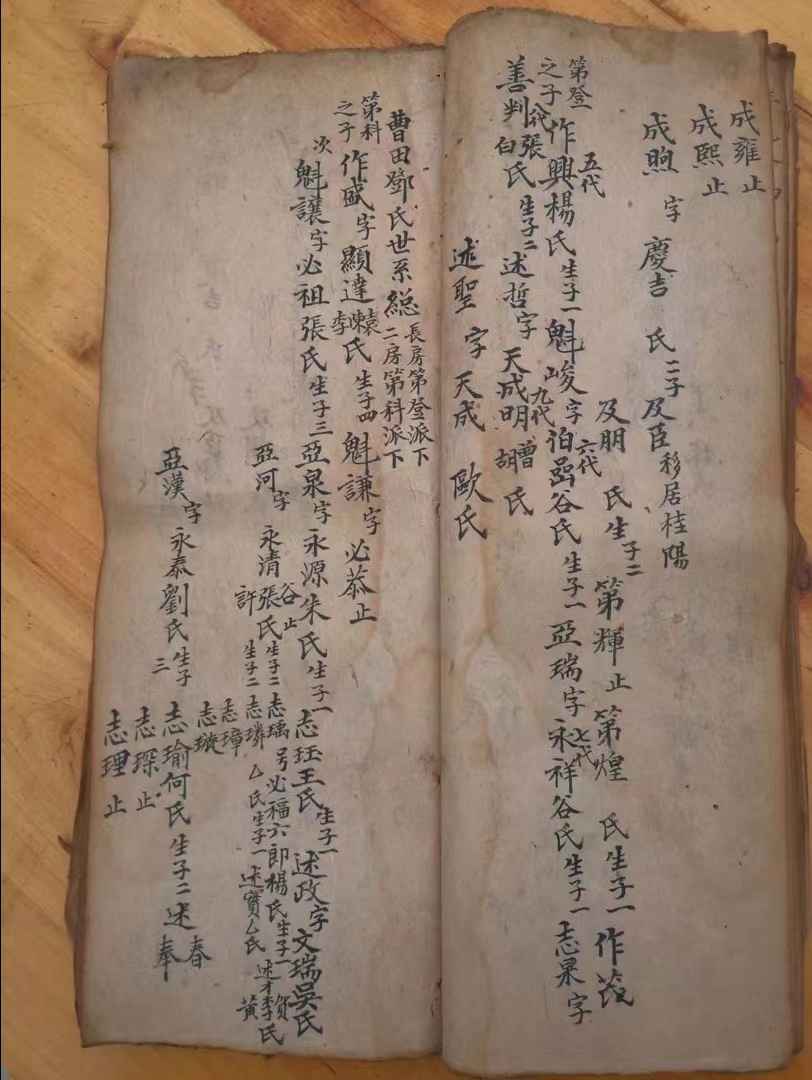 成雍止
成熙止
成煦字慶吉氏二子及臣移居桂陽
及朋氏生子二第輝止第煌氏生子一作茂
第登之子作興楊氏生子一魁峻字伯嵒谷氏生子一亞瑞字永祥谷氏生子一志杲字
五代
六代
七代
善判張氏生子二述哲字天成明曾胡氏
八代
白
九代
述聖字天成歐氏
曹田鄧氏世系総長房第登派下二房第科派下
第科之子作盛字顯達袁陳李氏生子四魁謙字必恭止
次魁讓字必祖張氏生子三亞泉字永源朱氏生子一志玨王氏生子一述政字文瑞吳氏
亞河字永清谷止張氏生子二志瑀号必福六郎楊氏生子一述才賀李黃氏
許生子二志璘乙氏生子一述寶乙氏
志璋
志璇
亞漢字永泰劉氏生子三志瑜何氏生子二述春奉
志琛止
志理止